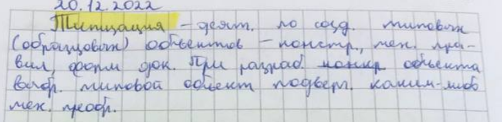 20.12.2022
Типизация – деят. по созд. типовых
(образцовых) объектов – констр., тех. пра-
вил, форм док. При разраб. объекта
выбр. типовой объект подверг. каким-либо
тех. преобр.